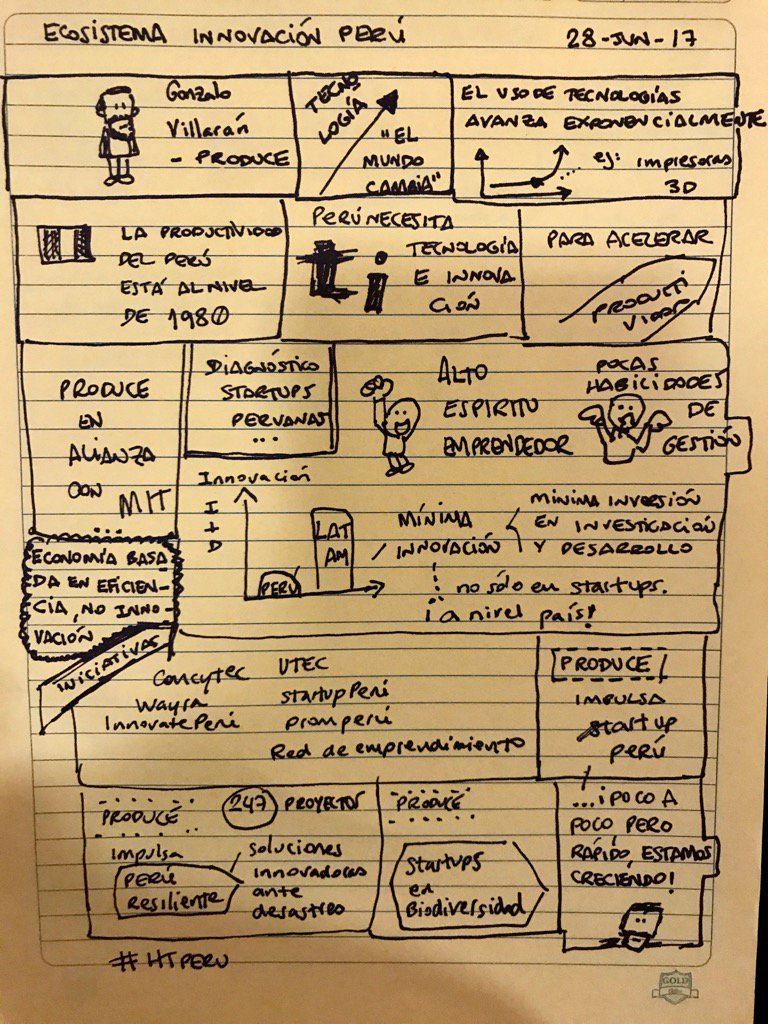 ECOSISTEMA INNOVACIÓN PERÚ
28-JUN-17
Gonzalo
Villarán
- PRODUCE
TECNO
LOGÍA
"EL
MUNDO
CAMBIA"
EL USO DE TECNOLOGÍAS
AVANZA EXPONENCIALMENTE
ej: impresoras
3D
LA PRODUCTIVIDAD
DEL PERÚ
ESTÁ AL NIVEL
DE 1980
PERÚ NECESITA
t i
TECNOLOGÍA
E INNOVA
CIÓN
PARA ACELERAR
PRODUCTI
VIDAD
PRODUCE
EN
ALIANZA
CON MIT
...
DIAGNÓSTICO
STARTUPS
PERUANAS
...
ALTO
ESPIRITU
EMPRENDEDOR
POCAS
HABILIDADES
DE
GESTIÓN
Innovación
I+D
PERÚ
LAT
AM
MÍNIMA
INNOVACIÓN
MÍNIMA INVERSIÓN
EN INVESTIGACIÓN
Y DESARROLLO
no sólo en startups.
¡a nivel país!
ECONOMÍA BASA
DA EN EFICIEN-
CIA, NO INNO-
VACIÓN
INICIATIVAS
Concytec
Wayra
InnovatePerú
UTEC
startupPerú
promperú
Red de emprendimiento
PRODUCE
IMPULSA
startup
PERÚ
PRODUCE
247 PROYECTOS
impulsa
PERÚ
RESILIENTE
soluciones
innovadoras
ante
desastres
PRODUCE
Startups
en
Biodiversidad
...¡POCO A
POCO PERO
RÁPIDO, ESTAMOS
CRECIENDO!
#HTPERU
GOLD